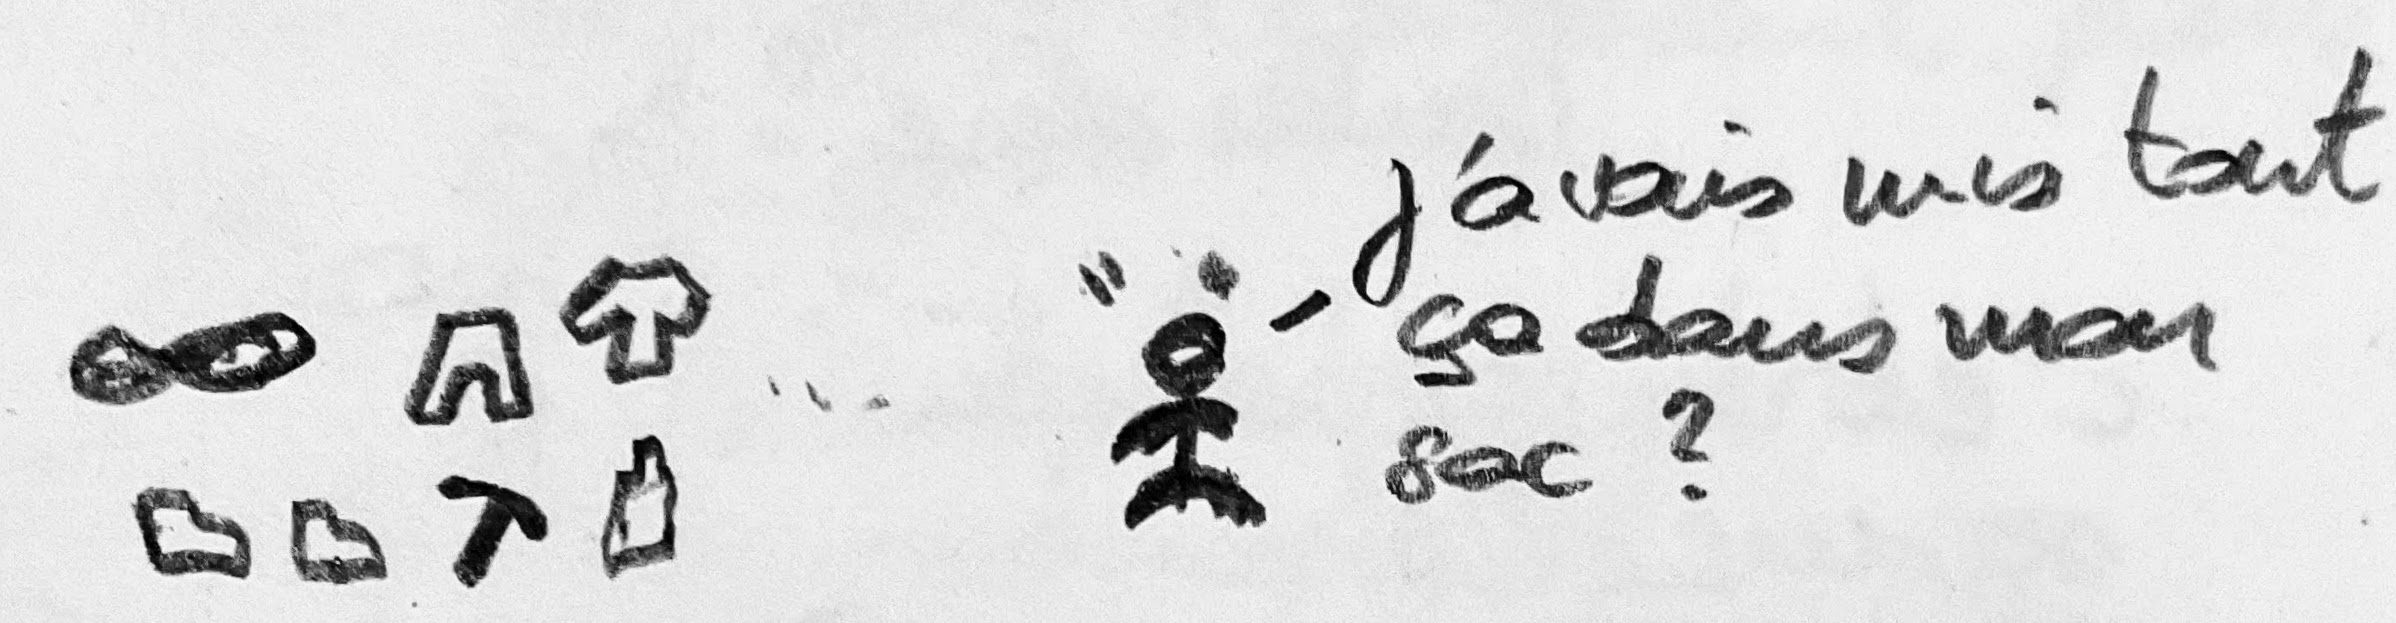 j'avais mis tout
ça dans mon
sac ?